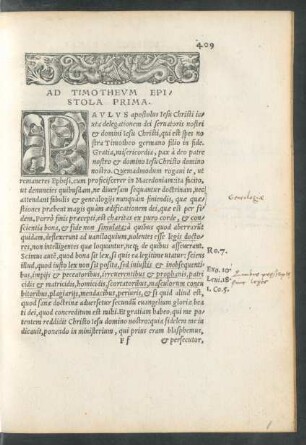 409
AD TIMOTHEVM EPI/
STOLA PRIMA.
PAVLVS apostolus Iesu Christi iu
xta delegationem dei seruatoris nostri
& domini Iesu Christi, qui est spes no
stra Timotheo germano filio in fide.
Gratia, misericordia, pax à deo patre
nostro & domino Iesu Christo domino
nostro. Quemadmodum rogaui te, ut
remaneres Ephesi, cum proficiscerer in Macedoniam sic facito,
ut denuncies quibusdam, ne diuersam sequantur doctrinam, nec
attendant fabulis & genealogijs nunquam finiendis, quae quae
stiones praebent magis quàm aedificationem dei, quae est per fi
dem. Porrò finis praecepti, est charitas ex puro corde, & con
scientia bona, & fide non simulata: à quibus quod aberrarint
quidam, deflexerunt ad uaniloquium, uolentes esse legis docto
res, non intelligentes quae loquuntur, neq; de quibus asseuerant.
Scimus autē, quod bona sit lex, si quis ea legitime utatur: sciens
illud, quod iusto lex non sit posita, sed iniustis & inobsequenti/
bus, impijs & peccatoribus, irreuerentibus & profanis, patri
cidis & matricidis, homicidis, scortatoribus, masculorum concu
bitoribus, plagiarijs, mendacibus, periuris, & si quid aliud est,
quod sanae doctrinae aduersetur secundū euangelium gloriae bea
ti dei, quod concreditum est mihi. Et gratiam habeo, qui me po
tentem reddidit Christo Iesu domino nostro: quia fidelem me iu
dicauit, ponendo in ministerium, qui prius eram blasphemus,
Ff & persecutor,
Genealogiae
Ro.7.
Exo.21.
Leui.18.
1. Co.5.